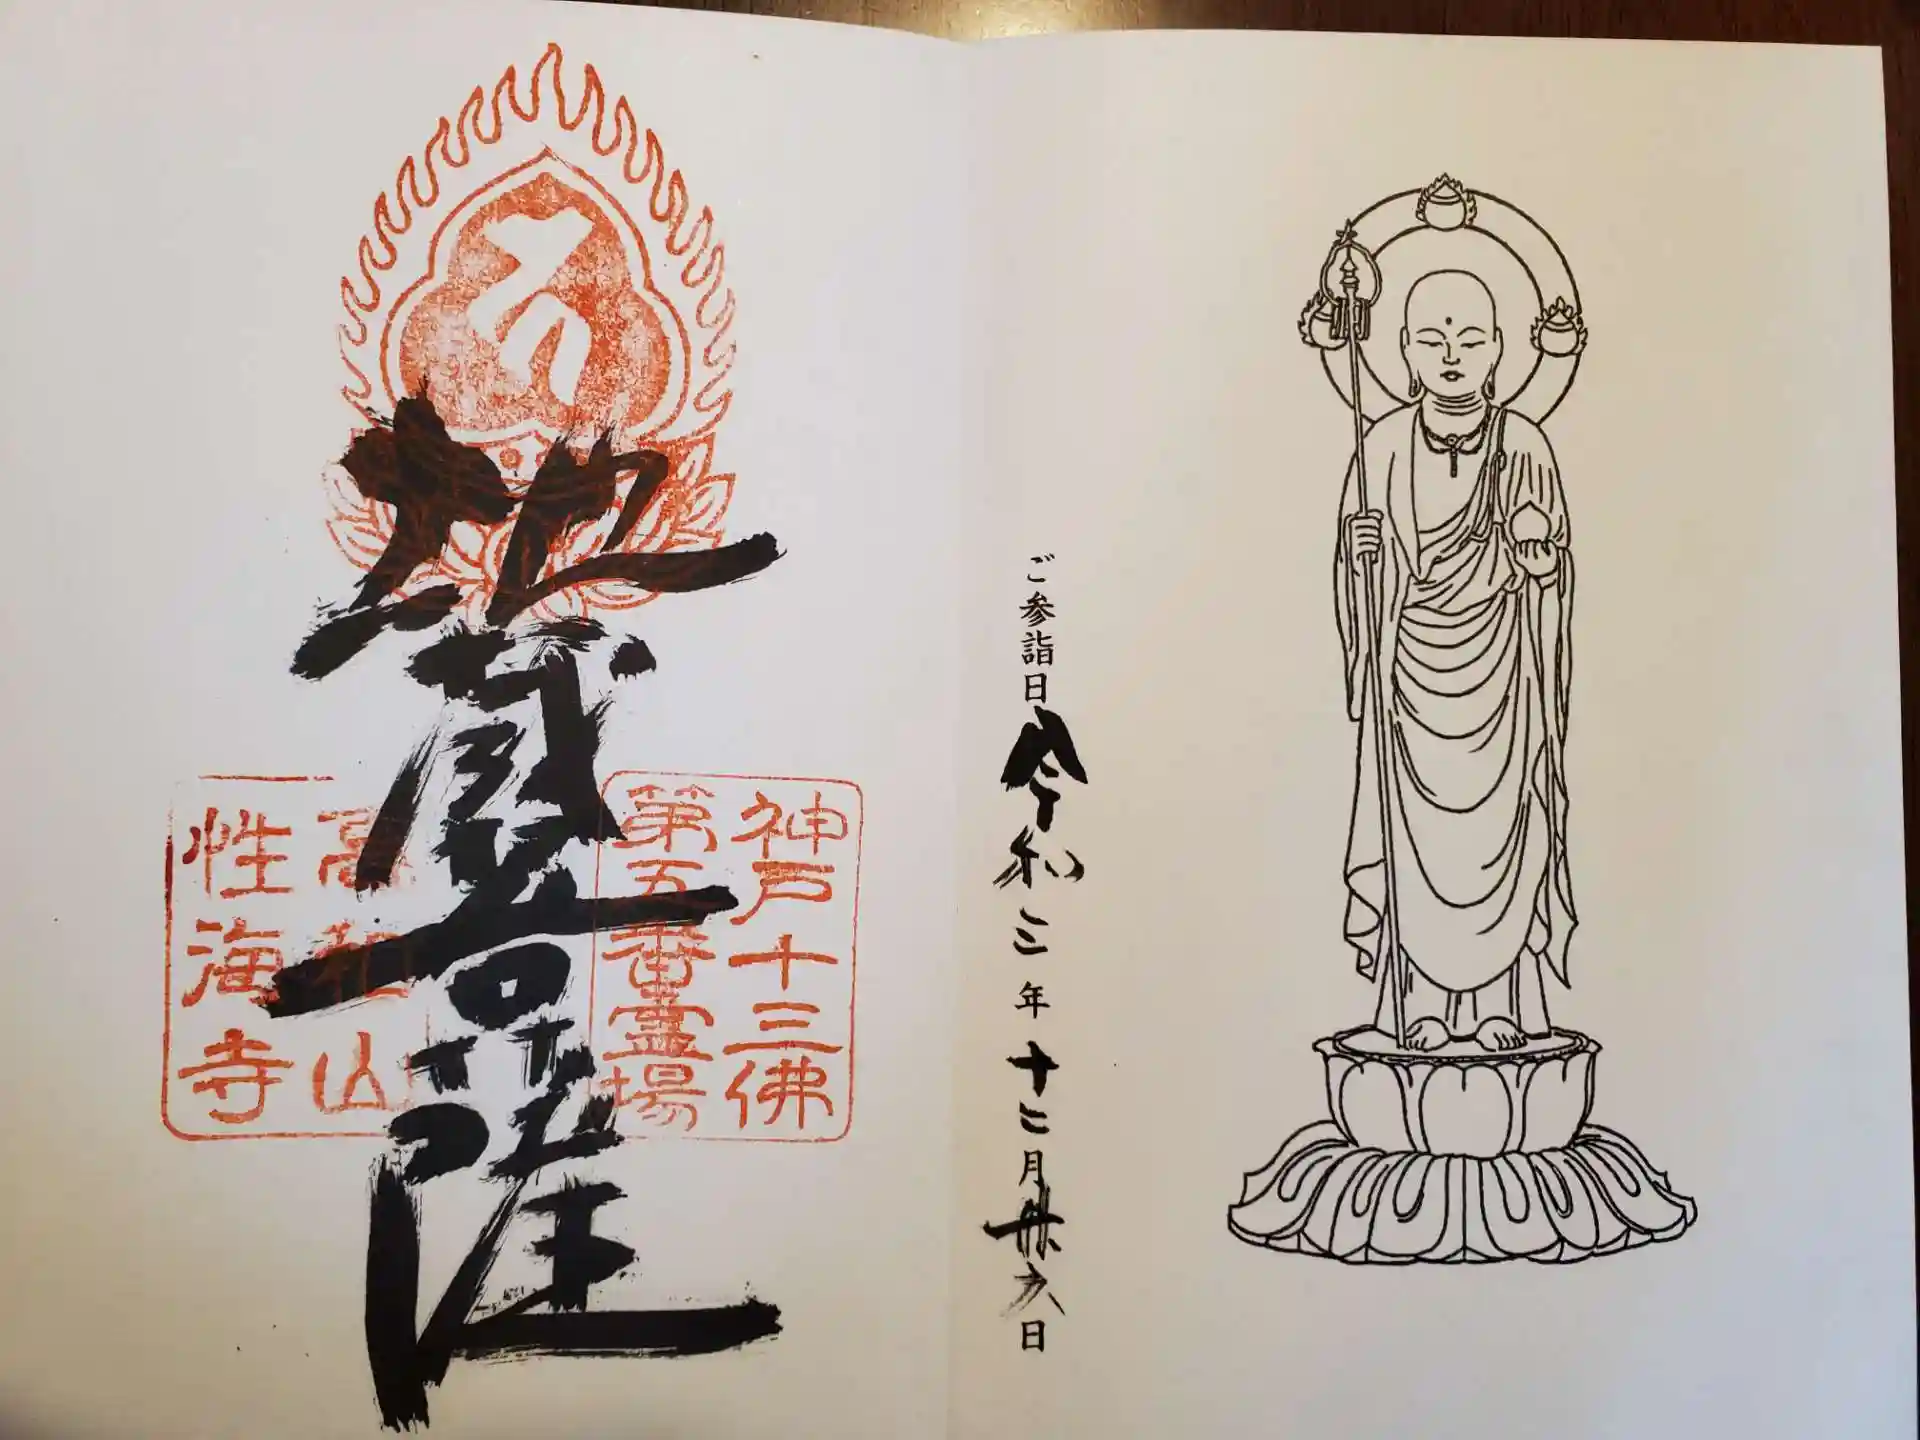 ご参詣日令和三年十二月廿六日
神戸十三佛
第五番霊場
地蔵菩薩
高和山
性海寺